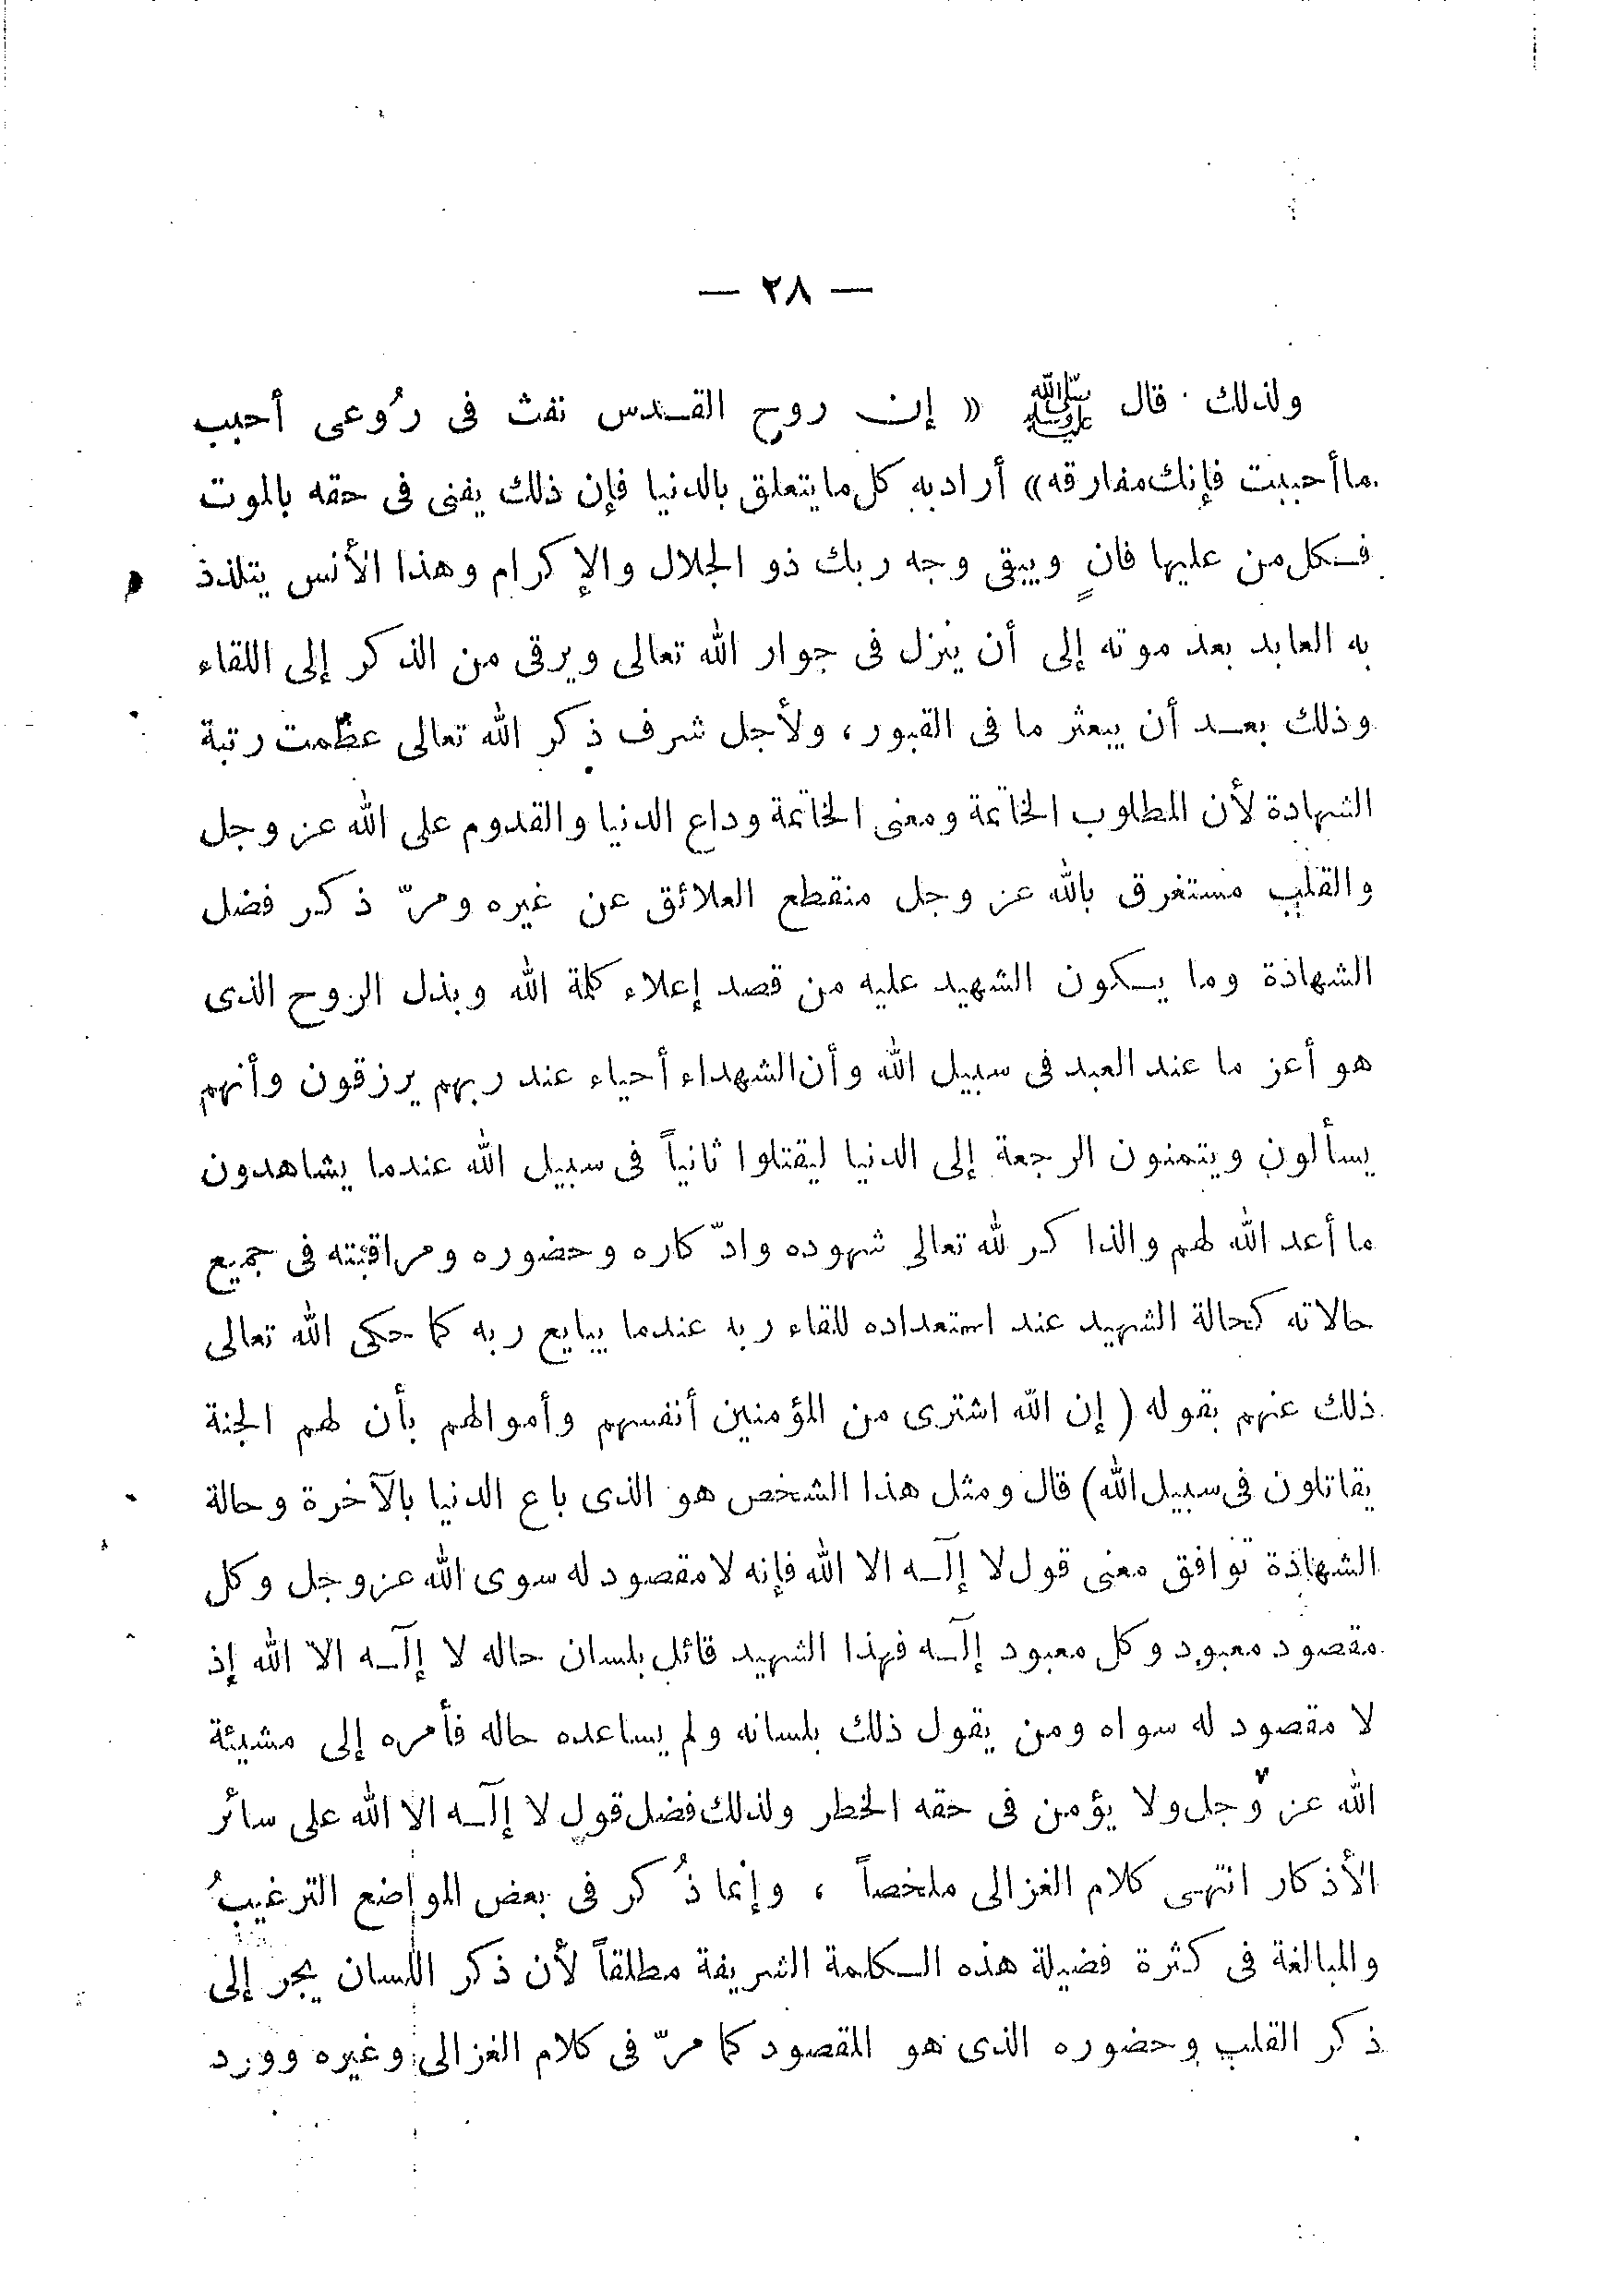 — ٢٨ —
ولذلك قال ﷺ « إن روح القدس نفث فى رُوعى أحبب
ما أحببت فإنك مفارقه » أراد به كل ما يتعلق بالدنيا فإن ذلك يفنى فى حقه بالموت
فكل من عليها فانٍ ويبقى وجه ربك ذو الجلال والإكرام وهذا الأنس يتلذذ
به العابد بعد موته إلى أن ينزل فى جوار الله تعالى ويرقى من الذكر إلى اللقاء
وذلك بعد أن يبعثر ما فى القبور ، ولأجل شرف ذكر الله تعالى عظُمت رتبة
الشهادة لأن المطلوب الخاتمة ومعنى الخاتمة وداع الدنيا والقدوم على الله عز وجل
والقلب مستغرق بالله عز وجل منقطع العلائق عن غيره ومرّ ذكر فضل
الشهادة وما يكون الشهيد عليه من قصد إعلاء كلمة الله وبذل الروح الذى
هو أعز ما عند العبد فى سبيل الله وأن الشهداء أحياء عند ربهم يرزقون وأنهم
يسألون ويتمنون الرجعة إلى الدنيا ليقتلوا ثانياً فى سبيل الله عندما يشاهدون
ما أعد الله لهم والذاكر لله تعالى شهوده وادّكاره وحضوره ومراقبته فى جميع
حالاته كحالة الشهيد عند استعداده للقاء ربه عندما يبايع ربه كما حكى الله تعالى
ذلك عنهم بقوله ( إن الله اشترى من المؤمنين أنفسهم وأموالهم بأن لهم الجنة
يقاتلون فى سبيل الله ) قال ومثل هذا الشخص هو الذى باع الدنيا بالآخرة وحالة
الشهادة توافق معنى قول لا إلٓه الا الله فإنه لا مقصود له سوى الله عز وجل وكل
مقصود معبود وكل معبود إلٓه فهذا الشهيد قائل بلسان حاله لا إلٓه الا الله إذ
لا مقصود له سواه ومن يقول ذلك بلسانه ولم يساعده حاله فأمره إلى مشيئة
الله عز وجل ولا يؤمن فى حقه الخطر ولذلك فضل قول لا إلٓه الا الله على سائر
الأذكار انتهى كلام الغزالى ملخصاً ، وإنما ذُكر فى بعض المواضع الترغيبُ
والمبالغة فى كثرة فضيلة هذه الكلمة الشريفة مطلقاً لأن ذكر اللسان يجر إلى
ذكر القلب وحضوره الذى هو المقصود كما مرّ فى كلام الغزالى وغيره وورد